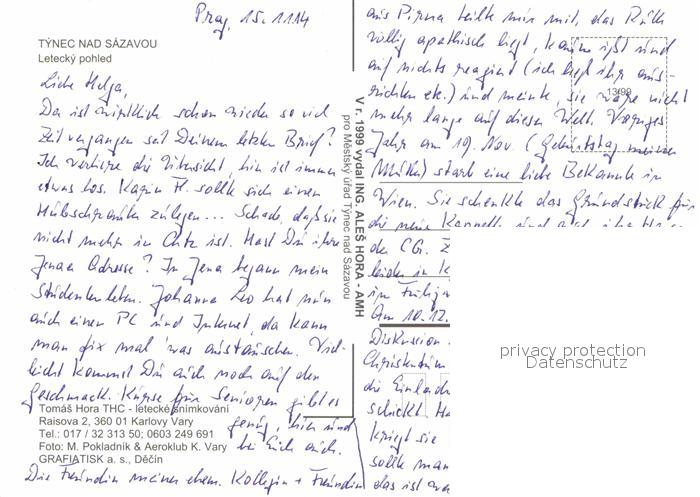 Prag, 15.11.14
TÝNEC NAD SÁZAVOU
Letecký pohled
Liebe Helga,
Da ist wirklich schon wieder so viel
Zeit vergangen seit Deinem letzten Brief!
Ich verliere die Übersicht, hier ist immer
etwas los. Karin H. sollte sich einen
Hubschrauber zulegen... Schade, daß sie
nicht mehr in Chtz ist. Hast Du ihre
Jenaer Adresse? In Jena begann mein
Studentenleben. Johanna Leo hat nun
auch einen PC und Internet, da kann
man fix mal was austauschen. Viel-
leicht kommst Du auch noch auf den
Geschmack. Kurse für Senioren gibt es
genug, hier und
bei Euch auch.
Die Freundin meiner ehem. Kollegin + Freundin
Tomáš Hora THC - letecké snímkování
Raisova 2, 360 01 Karlovy Vary
Tel.: 017 / 32 313 50; 0603 249 691
Foto: M. Pokladník & Aeroklub K. Vary
GRAFIATISK a. s., Děčín
V r. 1999 vydal ING. ALEŠ HORA - AMH
pro Městský úřad Týnec nad Sázavou
aus Pirna teilte mir mit, das Ruth
völlig apathisch liegt, kaum ißt und
auf nichts reagiert (ich ließ ihr aus-
richten etc.) und meinte, sie wäre nicht
mehr lange auf dieser Welt. Voriges
Jahr am 19. Nov. (Geburtstag meiner
Mutter) starb eine liebe Bekannte in
Wien. Sie schenkte das Grundstück für
die neue
der CG.
leider in
im Frühja
Am 10.12.
Diskussion
Christentum
die Einlad
schickt. Ha
kriegt sie
sollte man
das ist
13/99
privacy protection
Datenschutz